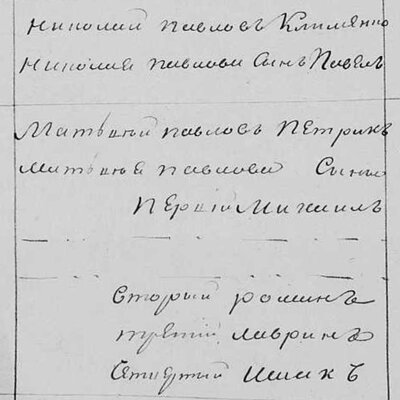 Николай Павловъ Клименко
Николая Павлова Сынъ Павелъ
Матвѣй Павловъ Петрикъ
Матвѣя Павлова Сыны
Первый Михаилъ
Вторый романъ
третий лавринъ
Четвертый Исакъ